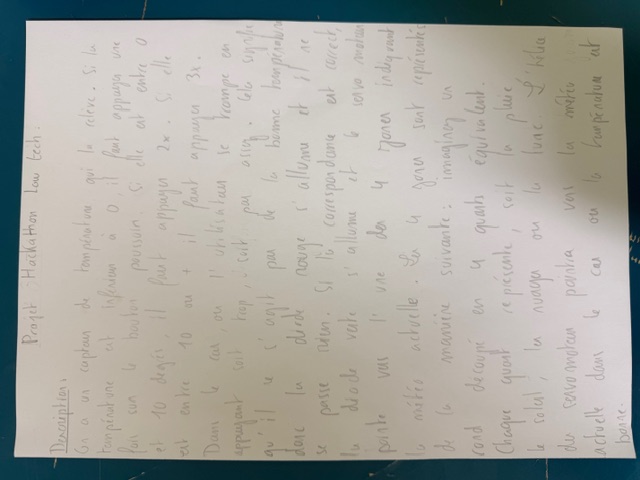 Projet : Hackathon Low tech.
Description :
On a un capteur de température qui la relève. Si la
température est inférieur à 0, il faut appuyer une
fois sur le bouton poussoir. Si elle est entre 0
et 10 degrés, il faut appuyer 2x. Si elle
est entre 10 ou + il faut appuyer 3x.
Dans le cas, où l'utilisateur se trompe en
appuyant soit trop, soit pas assez. Cela signifie
qu'il ne s'agit pas de la bonne température
donc la diode rouge s'allume et il ne
se passe rien. Si la correspondance est correct,
la diode verte s'allume et le servo moteur
pointe vers l'une des 4 zones indiquant
la météo actuelle. Les 4 zones sont représentés
de la manière suivante : imaginez un
rond découpé en 4 quarts équivalent.
Chaque quart représente, soit la pluie
le soleil, les nuages ou la lune. L'hélice
du servomoteur pointra vers la météo
actuelle dans le cas où la température est
bonne.